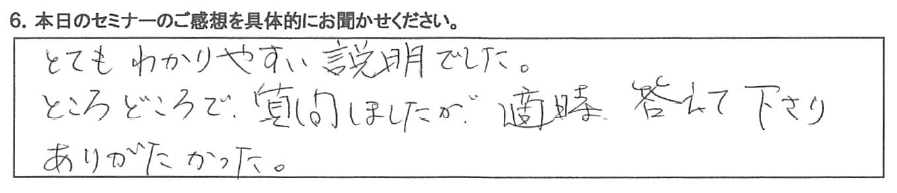 6. 本日のセミナーのご感想を具体的にお聞かせください。
とてもわかりやすい説明でした。
ところどころで、質問しましたが、適時、答えて下さり
ありがたかった。